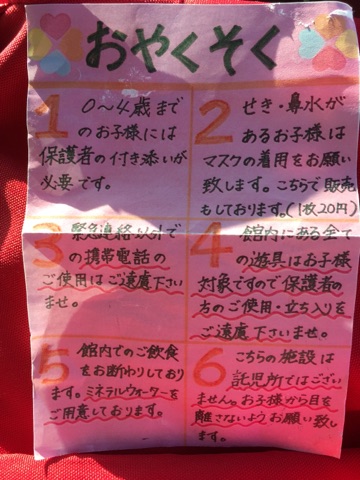 おやくそく
1 0～4歳まで
のお子様には
保護者の付き添いが
必要です。
2 せき・鼻水が
あるお子様は
マスクの着用をお願い
致します。こちらで販売
もしております。(1枚20円)
3 緊急連絡以外で
の携帯電話の
ご使用はご遠慮下さい
ませ。
4 館内にある全て
の遊具はお子様
対象ですので保護者の
方のご使用・立ち入りを
ご遠慮下さいませ。
5 館内でのご飲食
をお断わりしており
ます。ミネラルウォーターを
ご用意しております。
6 こちらの施設は
託児所ではござい
ません。お子様から目を
離さないようお願い致し
ます。